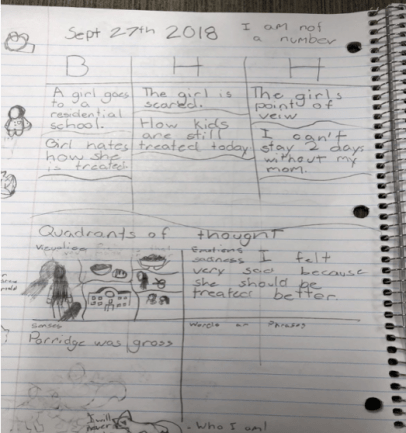 Sept 27th 2018
I am not
a number
B
H
H
A girl goes
to a
residential
school.
Girl hates
how she
is treated
The girl is
scared.
How kids
are still
treated today
The girls
point of
veiw
I can't
stay 2 days
without my
mom.
Quadrants of thought
Visualize
Emotions
sadness I felt
very sad because
she should be
treated better.
Senses
Porridge was gross
Words or Phrases
I will
never
. Who I am!